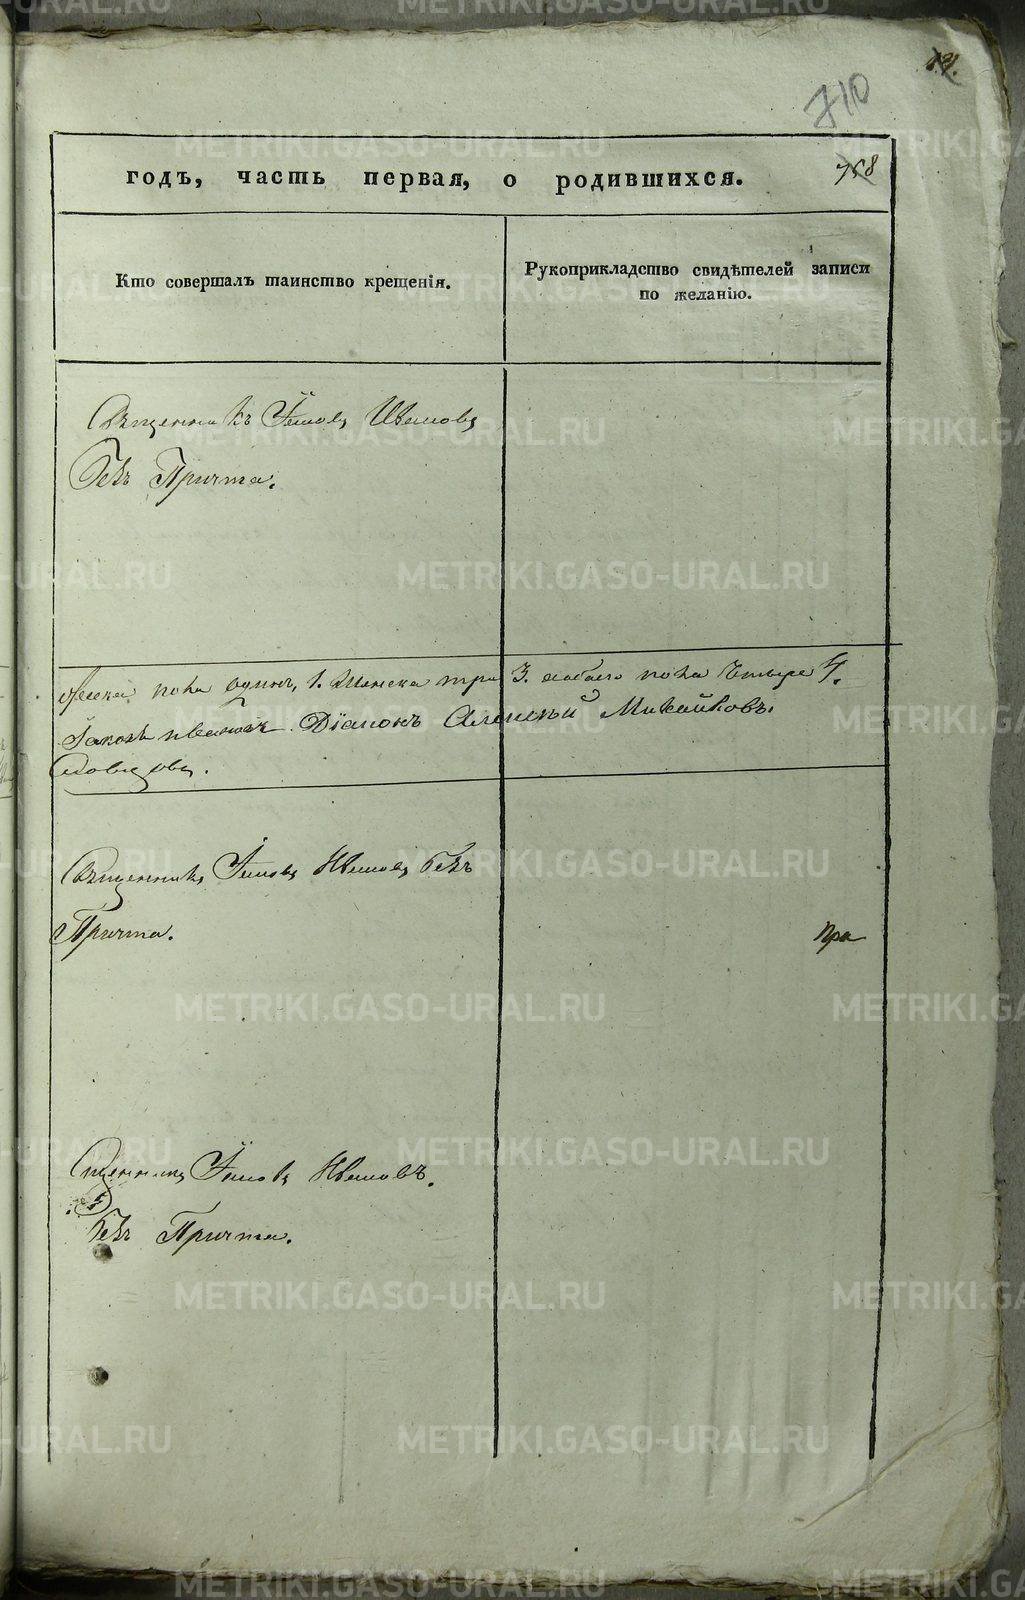 710
758
годъ, часть первая, о родившихся.
Кто совершалъ таинство крещенія.
Рукоприкладство свидѣтелей записи
по желанію.
Священникъ Іаковъ Ивановъ
безъ Причта.
пола одинъ, 1. Женска три 3. обоего пола Четыре 4.
Іаковъ Ивановъ. Діаконъ Алексѣй Михайловъ
Священникъ Іаковъ Ивановъ безъ
Причта.
Пра
Іаковъ Ивановъ.
безъ Причта.
METRIKI.GASO-URAL.RU